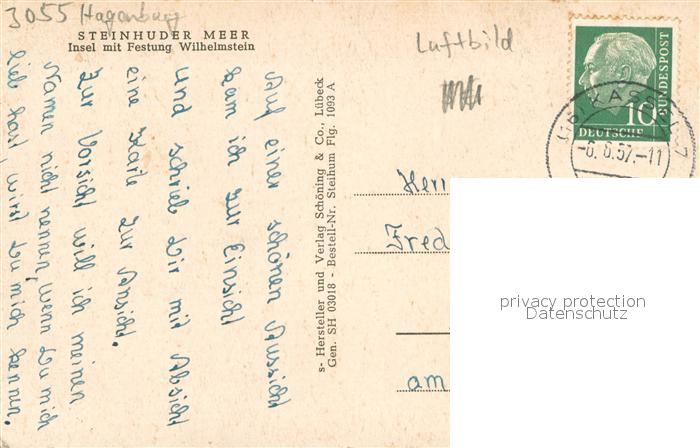 3055 Hagenburg
STEINHUDER MEER
Insel mit Festung Wilhelmstein
Luftbild
Auf einer schönen Aussicht
kam ich zur Einsicht
und schrieb Dir mit Absicht
eine Karte zur Ansicht.
Zur Vorsicht will ich meinen
Namen nicht nennen, wenn Du mich
lieb hast, wirst Du mich kennen.
s- Hersteller und Verlag Schöning & Co., Lübeck
Gen. SH 03018 - Bestell-Nr. Steihum Flg. 1093 A
DEUTSCHE
BUNDESPOST
10
KASSEL
-6.6.57.-11
Herr
Fred
am
privacy protection
Datenschutz